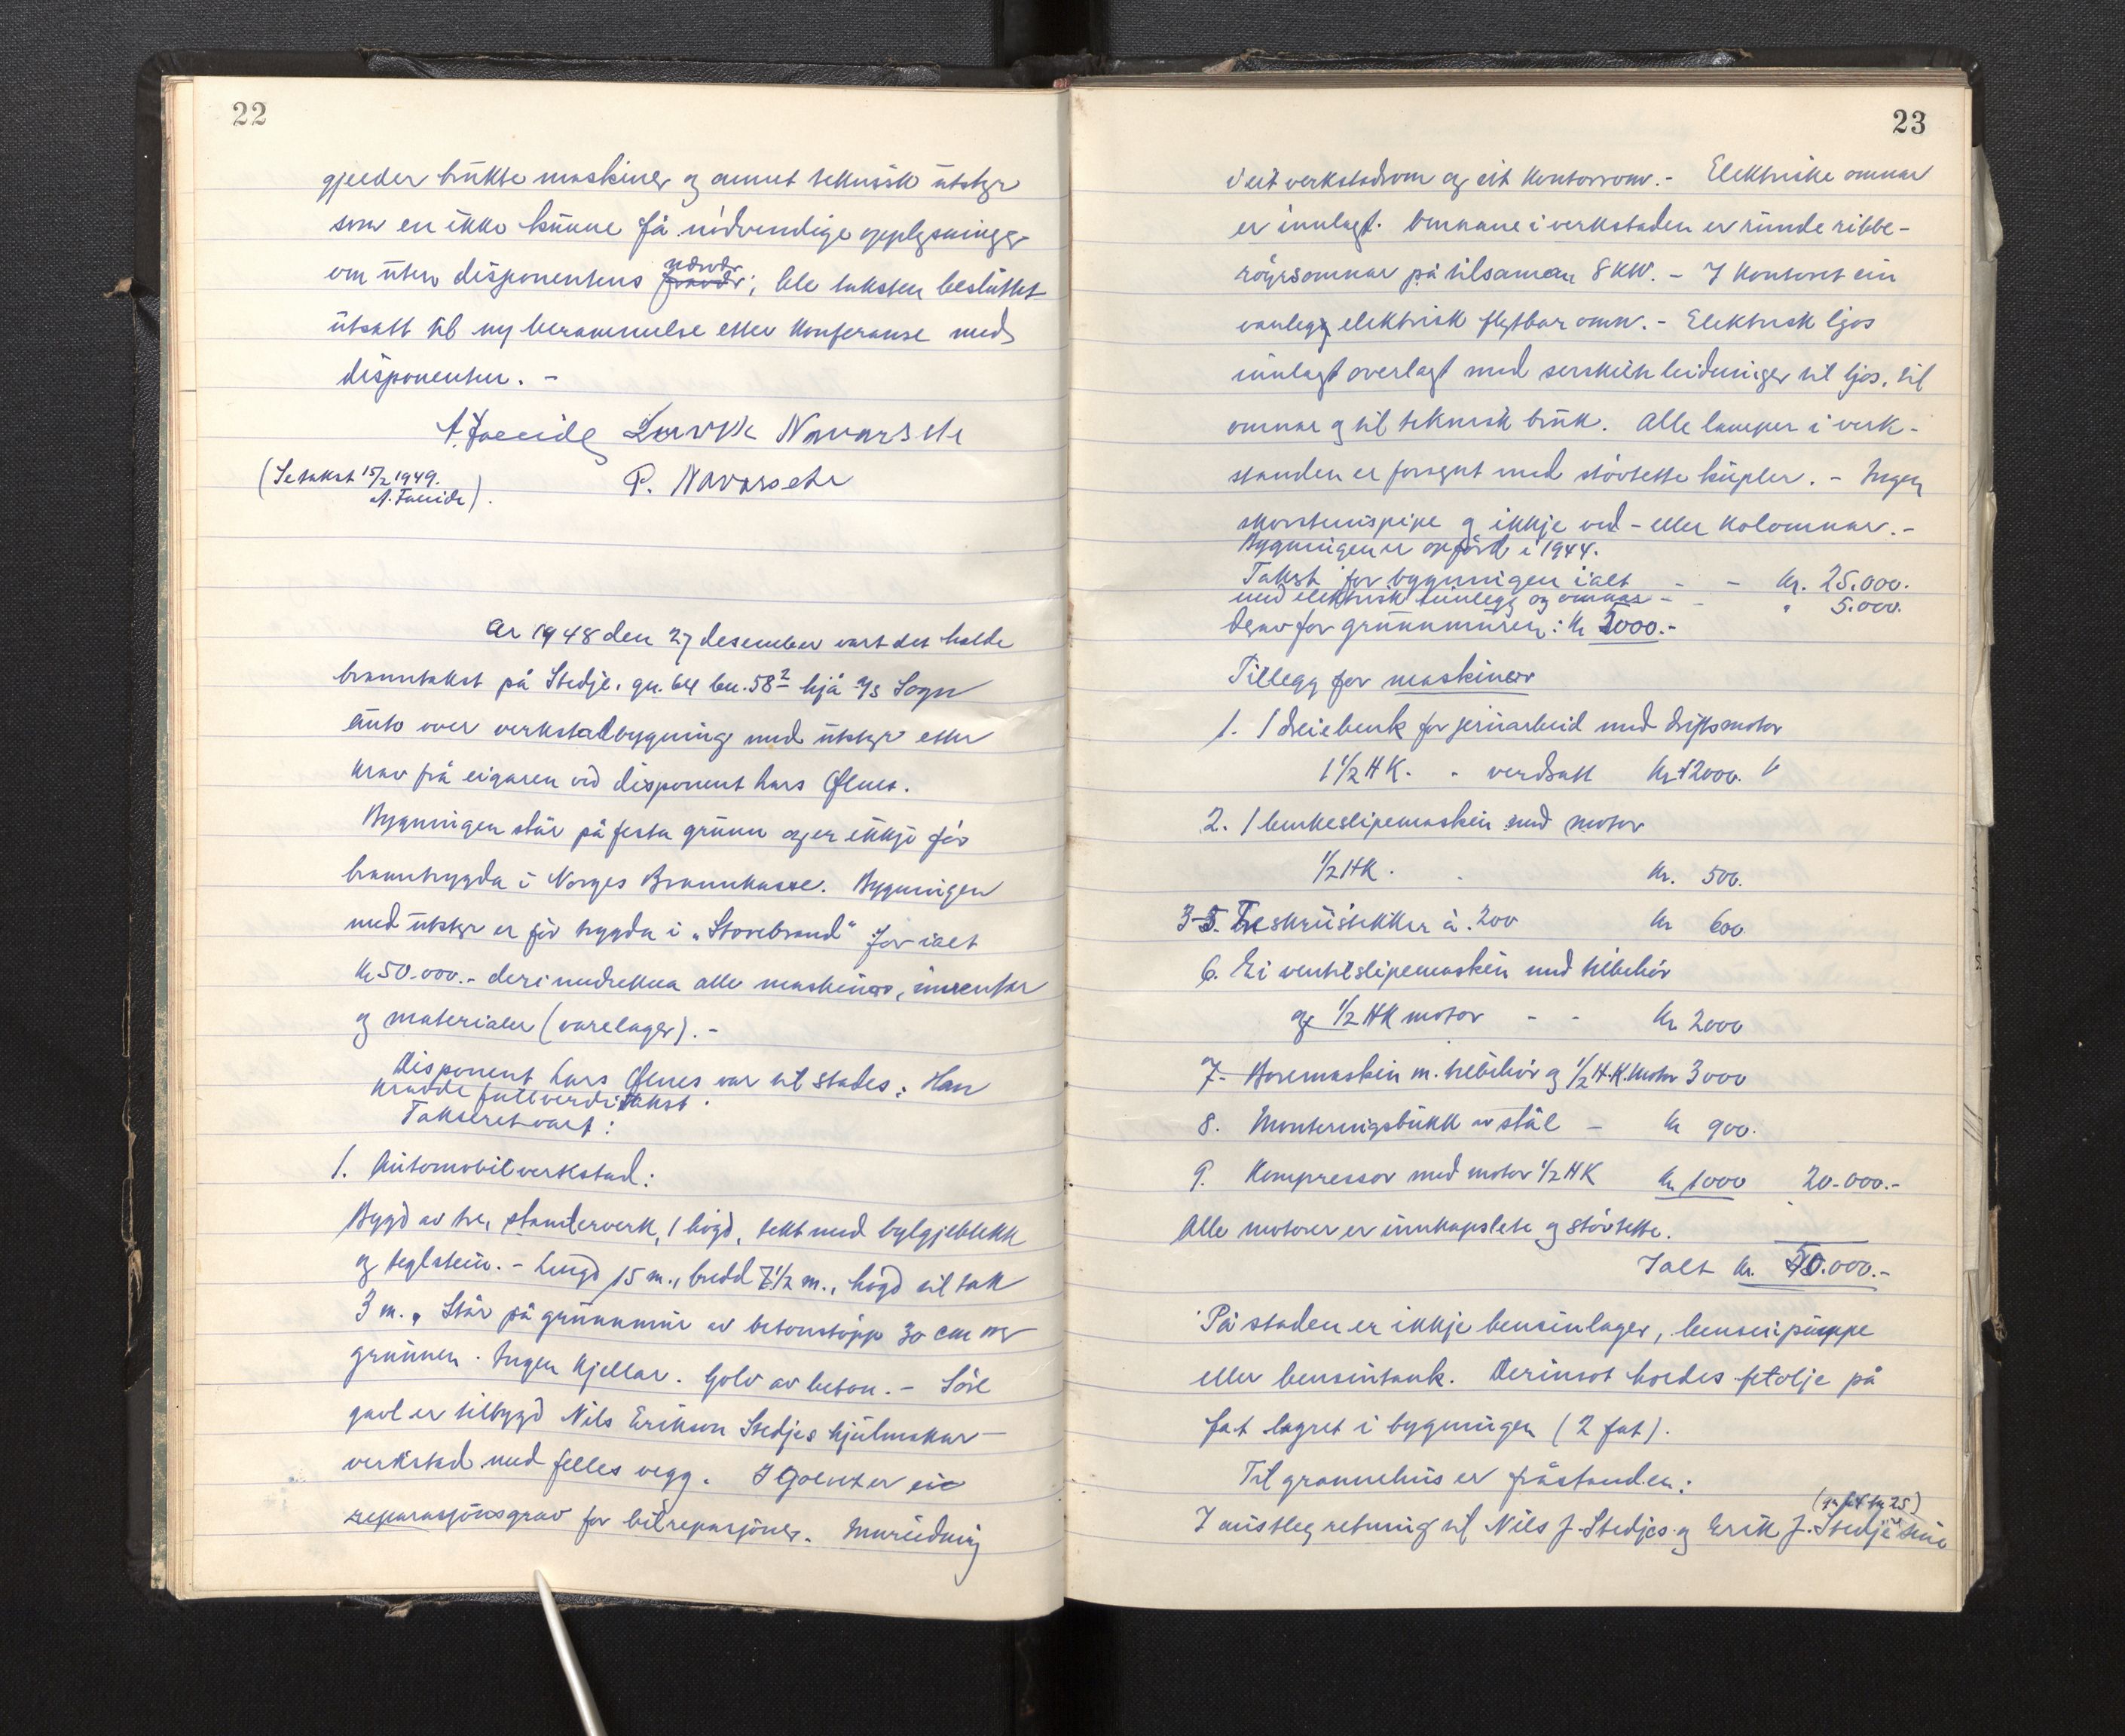 22
gjelder brukte maskiner og annet teknisk utstyr
som en ikke kunne få nødvendige opplysninger
om uten disponentens nærvær; ble taksten besluttet
utsatt til ny berammelse etter konferanse med
disponenten. -
Navarsete
(Se takst 15/2 1949.
P. Navarsete
År 1948 den 27 desember vart det halde
branntakst på Stedje, gn. 64 bn. 58² hjå A/S Sogn
Auto over verkstadbygning med utstyr etter
krav frå eigaren ved disponent Lars Ølnes.
Bygningen står på festa grunn og er ikkje før
branntrygda i Norges Brannkasse. Bygningen
med utstyr er før trygda i "Storebrand" for ialt
kr 50.000.- deri medrekna alle maskiner, inventar
og materialer (varelager). -
Disponent Lars Ølnes var til stades: Han
kravde fullverditakst.
Takseret vart:
1. Automobilverkstad:
Bygd av tre, stenderverk, 1 høgd, tekt med bylgjeblekk
og teglstein. - Lengd 15 m., bredd 7½ m., høgd til tak
3 m. Står på grunnmur av betonstøpp 30 cm over
grunnen. Ingen kjellar. Golv av beton. - Søre
gavl er tilbygd Nils Erikson Stedjes hjulmakar-
verkstad med felles vegg. I golvet er ei
reparasjonsgrav for bilreparsjoner. Innreidning
23
i eit verkstadrom og eit kontorrom. - Elektriske omnar
er innlagt. Omnane i verkstaden er runde ribbe-
røyrsomnar på tilsaman 8 KW. - I kontoret ein
vanlegg elektrisk flytbar omn. - Elektrisk ljos
innlagt overlagt med serskilte leidninger til ljos, til
omnar og til teknisk bruk. Alle lamper i verk-
staden er forsynt med støvtette kupler. - Ingen
skorsteinspipe og ikkje ved- eller kolomnar. -
Bygningen er oppførd i 1944.
Takst for bygningen ialt - - kr. 25.000.
med elektrisk innlegg og omnar - - " 5.000.
Derav for grunnmuren: kr 2000.-
Tillegg for maskiner
1. 1 dreiebenk for jernarbeid med driftsmotor
1 1/2 HK. - verdsatt kr 12000.
2. 1 benkeslipemaskin med motor
1/2 HK. . kr. 500.
3-5. Tre skrustikker à 200 kr 600
6. Ei ventilslipemaskin med tilbehør
og 1/2 HK motor - - kr 2000
7. Boremaskin m. tilbehør og 1/2 H.K. motor 3000
8. Monteringsbukk av stål - kr 900.
9. Kompressor med motor 1/2 HK kr 1000 20.000.-
Alle motorer er innkapslete og støvtette.
Ialt kr. 50.000.-
På staden er ikkje bensinlager, bensinpumpe
eller bensintank. Derimot havdes fetolje på
fat lagret i bygningen (2 fat).
Til grannehus er fråstanden:
(gn 64 bn 25)
I austleg retning til Nils J. Stedjes og Erik J. Stedje sine